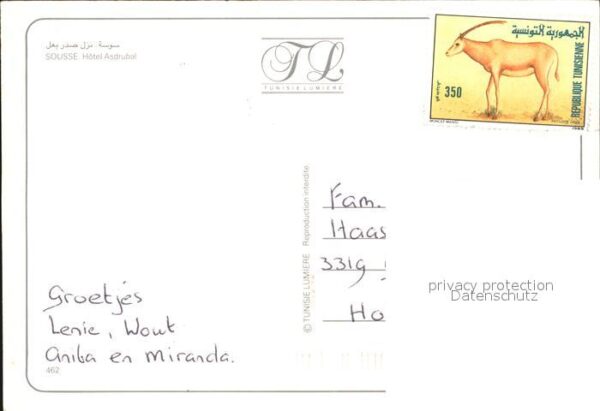 سوسة نزل صدر بعل
SOUSSE Hôtel Asdrubal
TL
TUNISIE LUMIERE
الجمهورية التونسية
350
REPUBLIQUE TUNISIENNE
© TUNISIE LUMIERE Reproduction interdite
Fam.
Haas
3319
Ho
Groetjes
Lenie, Wout
Anita en Miranda.
462
privacy protection
Datenschutz